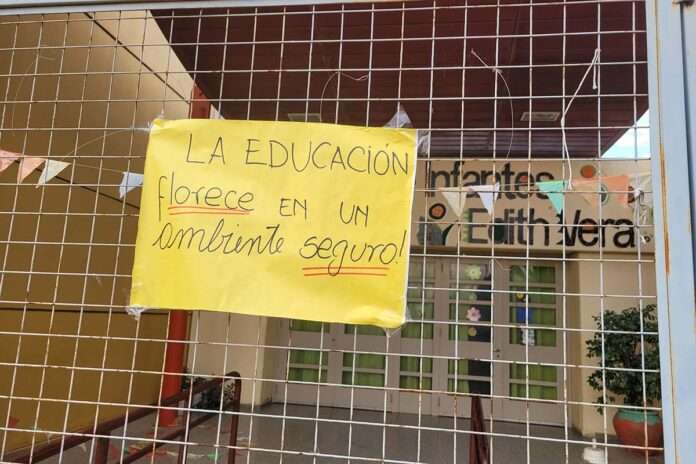 LA EDUCACIÓN
florece EN UN
ambiente seguro!
Infantes
Edith Vera